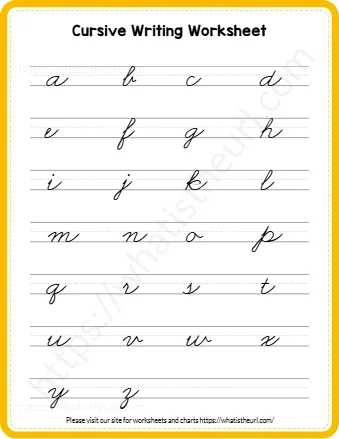 Cursive Writing Worksheet
a b c d
e f g h
i j k l
m n o p
q r s t
u v w x
y z
Please visit our site for worksheets and charts https://whatistheurl.com/
https://whatistheurl.com